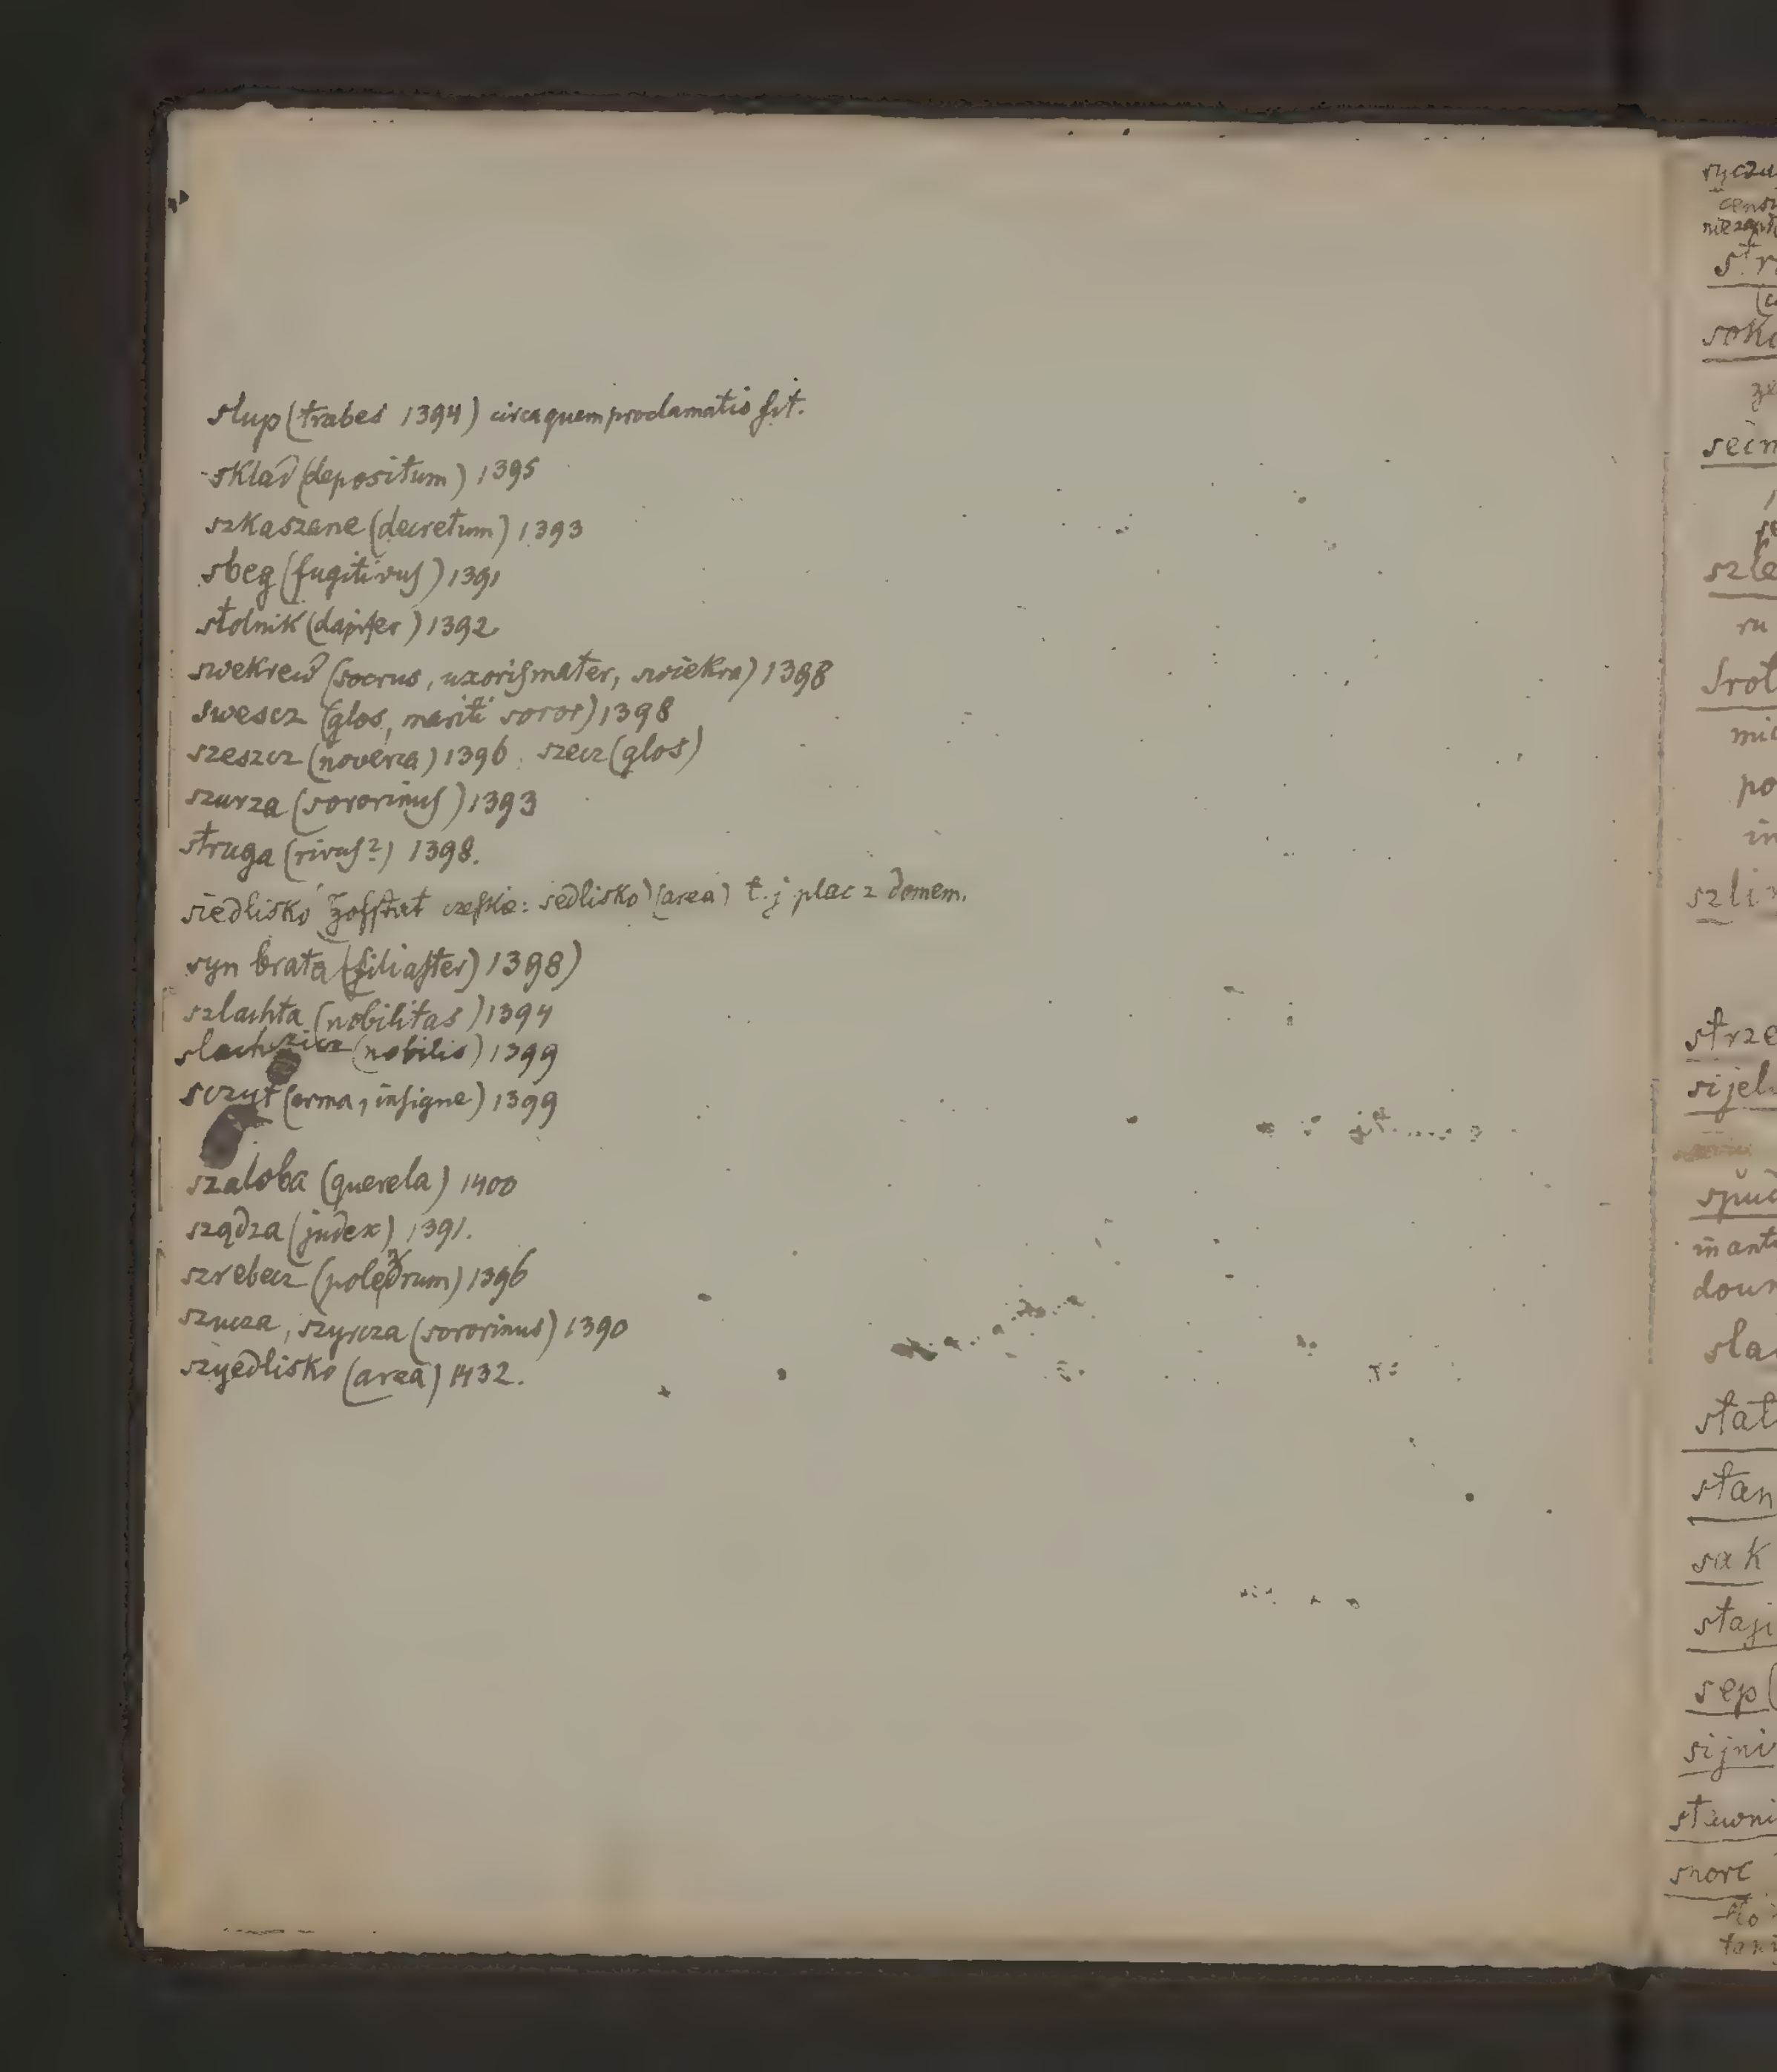 slup (trabes 1394) circa quem proclamatio fit.
sklad (depositum) 1395
szkaszane (decretum) 1393
sbeg (fugitivus) 1391
stolnik (dapifer) 1392
swekrew (socrus, uxoris mater, swiekra) 1398
swescz (glos, mariti soror) 1398
szeszcz (noverca) 1396. szecz (glos)
szurza (sororinus) 1393
struga (rivus?) 1398.
siedlisko czeskie: sedlisko) (area) t. j plac z domem.
syn brata (filiaster) 1398)
szlachta (nobilitas) 1394
slachczicz (nobilis) 1399
sczyt (arma, insigne) 1399
szaloba (querela) 1400
sządza (judex) 1391.
szrebecz (poledrum) 1396
szucza, szyrcza (sororinus) 1390
szyedlisko (area) 1432.
stan
sak
sep
snorc